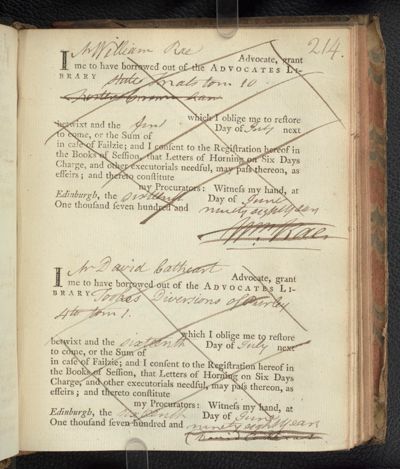 214.
I Mr William Rae Advocate, grant
me to have borrowed out of the ADVOCATES LI-
BRARY State Trials tom 10
which I oblige me to restore
betwixt and the Day of July next
to come, or the Sum of
in case of Failzie; and I consent to the Registration hereof in
the Books of Session, that Letters of Horning on Six Days
Charge, and other executorials needful, may pass thereon, as
effeirs; and thereto constitute
my Procurators: Witness my hand, at
Edinburgh, the sixteenth Day of June
One thousand seven hundred and ninety eight years
Wm. Rae
I Mr David Cathcart Advocate, grant
me to have borrowed out of the ADVOCATES LI-
BRARY Tooke's Diversions of Purley
4to tom 1.
which I oblige me to restore
betwixt and the sixteenth Day of July next
to come, or the Sum of
in case of Failzie; and I consent to the Registration hereof in
the Books of Session, that Letters of Horning on Six Days
Charge, and other executorials needful, may pass thereon, as
effeirs; and thereto constitute
my Procurators: Witness my hand, at
Edinburgh, the sixteenth Day of June
One thousand seven hundred and ninety eight years
David Cathcart